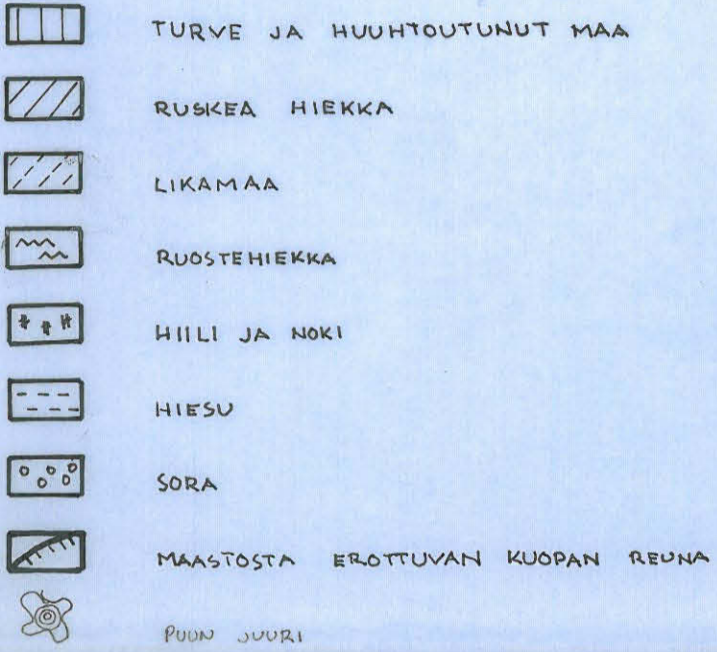 TURVE JA HUUHTOUTUNUT MAA
RUSKEA HIEKKA
LIKAMAA
RUOSTEHIEKKA
HIILI JA NOKI
HIESU
SORA
MAASTOSTA EROTTUVAN KUOPAN REUNA
PUUN JUURI